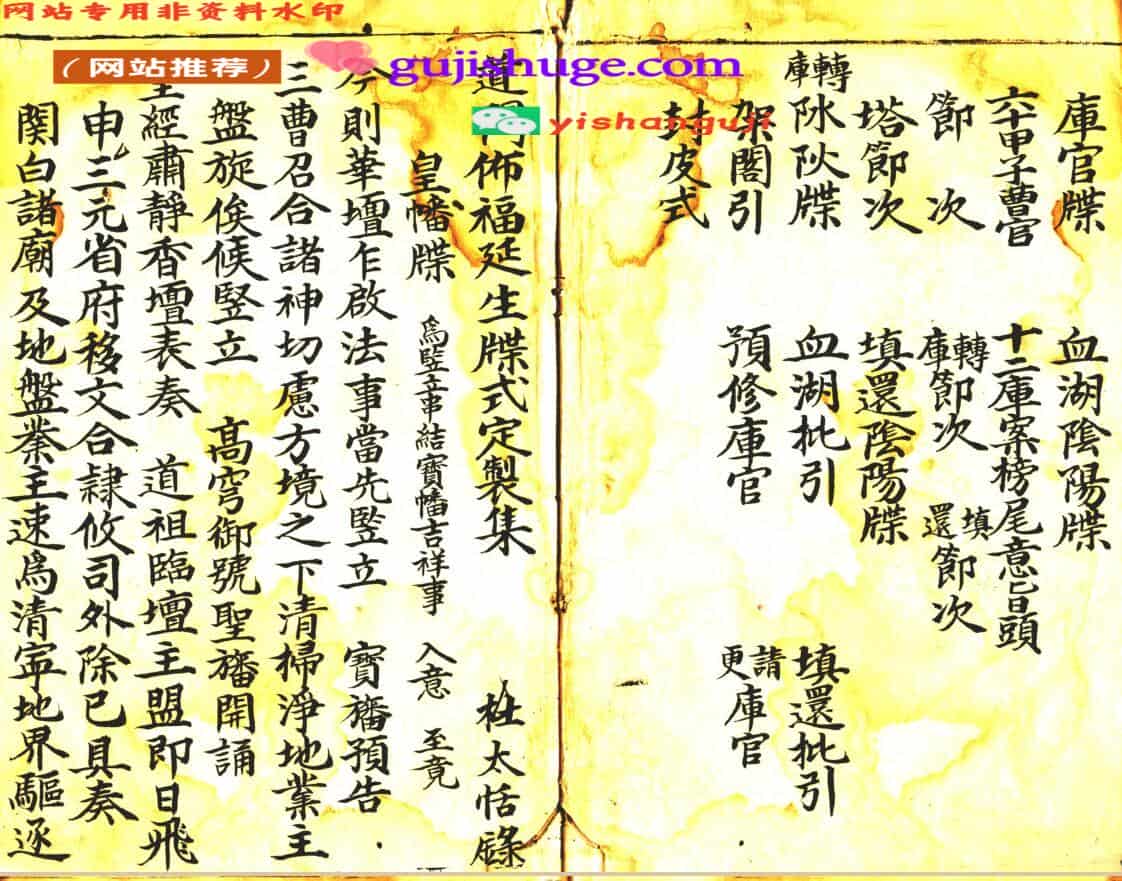 网站专用非资料水印
（网站推荐）
gujishuge.com
yishanguji
庫官牒 血湖陰陽牒
六十甲子曹官 十二庫案榜尾意旨頭
節次 轉庫節次 填還節次
塔節次 填還陰陽牒
轉庫陰陽牒 血湖批引 填還批引
架閣引 預修庫官 請更庫官
封皮式
道門佈福延生牒式定製集 杜太恬錄
皇旛牒 為豎立事結寶旛吉祥事 入意 至竟
今則華壇乍啟法事當先豎立 寶旛預告
三曹召合諸神切慮方境之下清掃淨地業主
盤旋俟候豎立 高穹御號聖旛開誦
經肅靜香壇表奏 道祖臨壇主盟即日飛
申三元省府移文合隷攸司外除已具奏
関白諸廟及地盤業主速為清寜地界驅逐